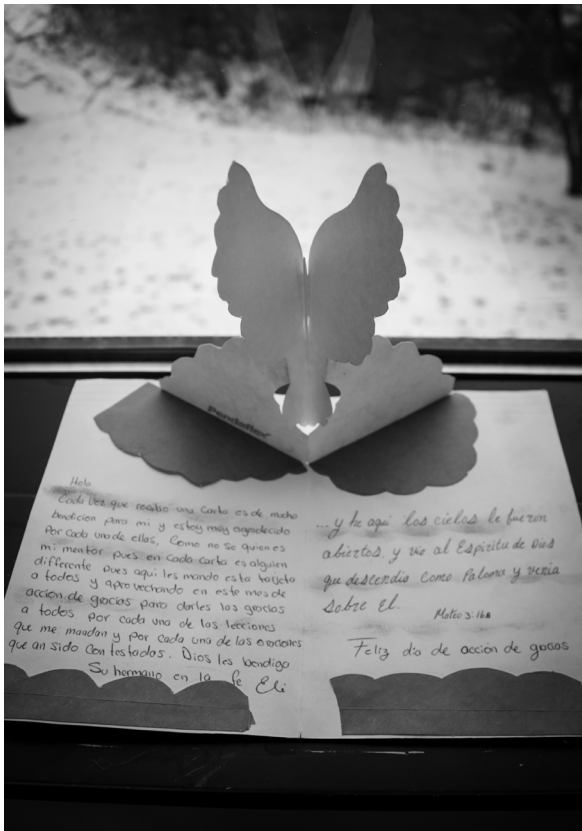 Pendaflex
Hola
Cada vez que recibo una carta es de mucho
bendicion para mi y estoy muy agradecido
Por cada una de ellas, Como no se quien es
mi mentor pues en cada carta es alguien
differente pues aqui les mando esta tarjeta
a todos y aprovechando en este mes de
acción de gracias para darles las gracias
a todos por cada una de las lecciones
que me mandan y por cada una de las oraciones
que an sido contestadas. Dios les bendiga
Su hermano en la fe Eli
... y he aqui los cielos le fueron
abiertos, y vio al Espiritu de Dios
que descendia como Paloma y venia
sobre El.
Mateo 3:16B
Feliz dia de acción de gracias